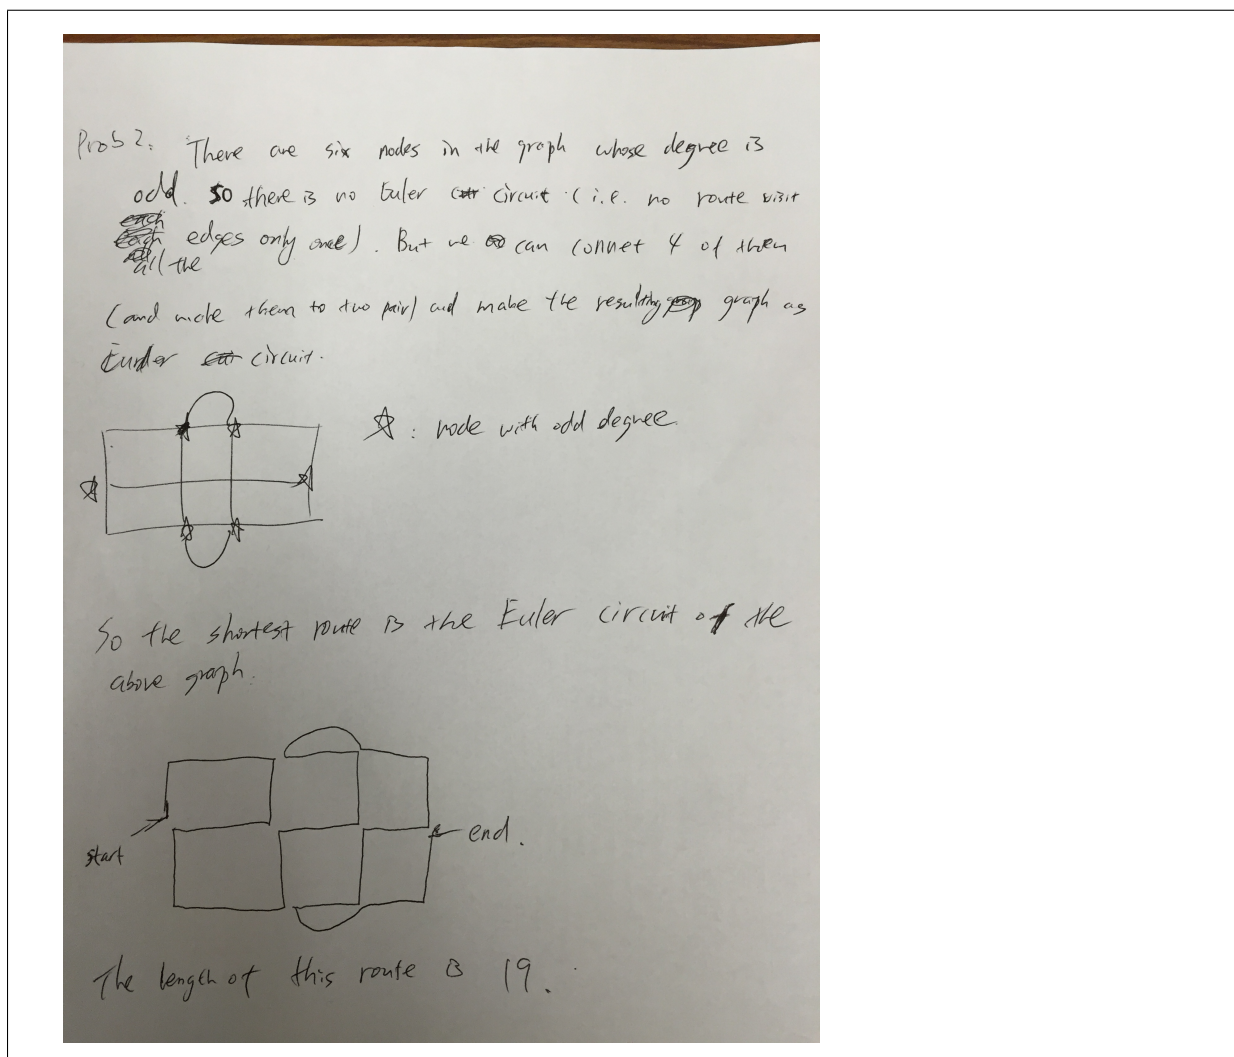 Prob 2. There are six nodes in the graph whose degree is
odd. so there is no Euler circuit (i.e. no route visit
edges only once). But we can connet 4 of them
all the
(and make them to two pair) and make the resulting graph as
circuit.
☆ : node with odd degree.
So the shortest route is the Euler circuit of the
above graph.
start
end.
The length of this route is 19.